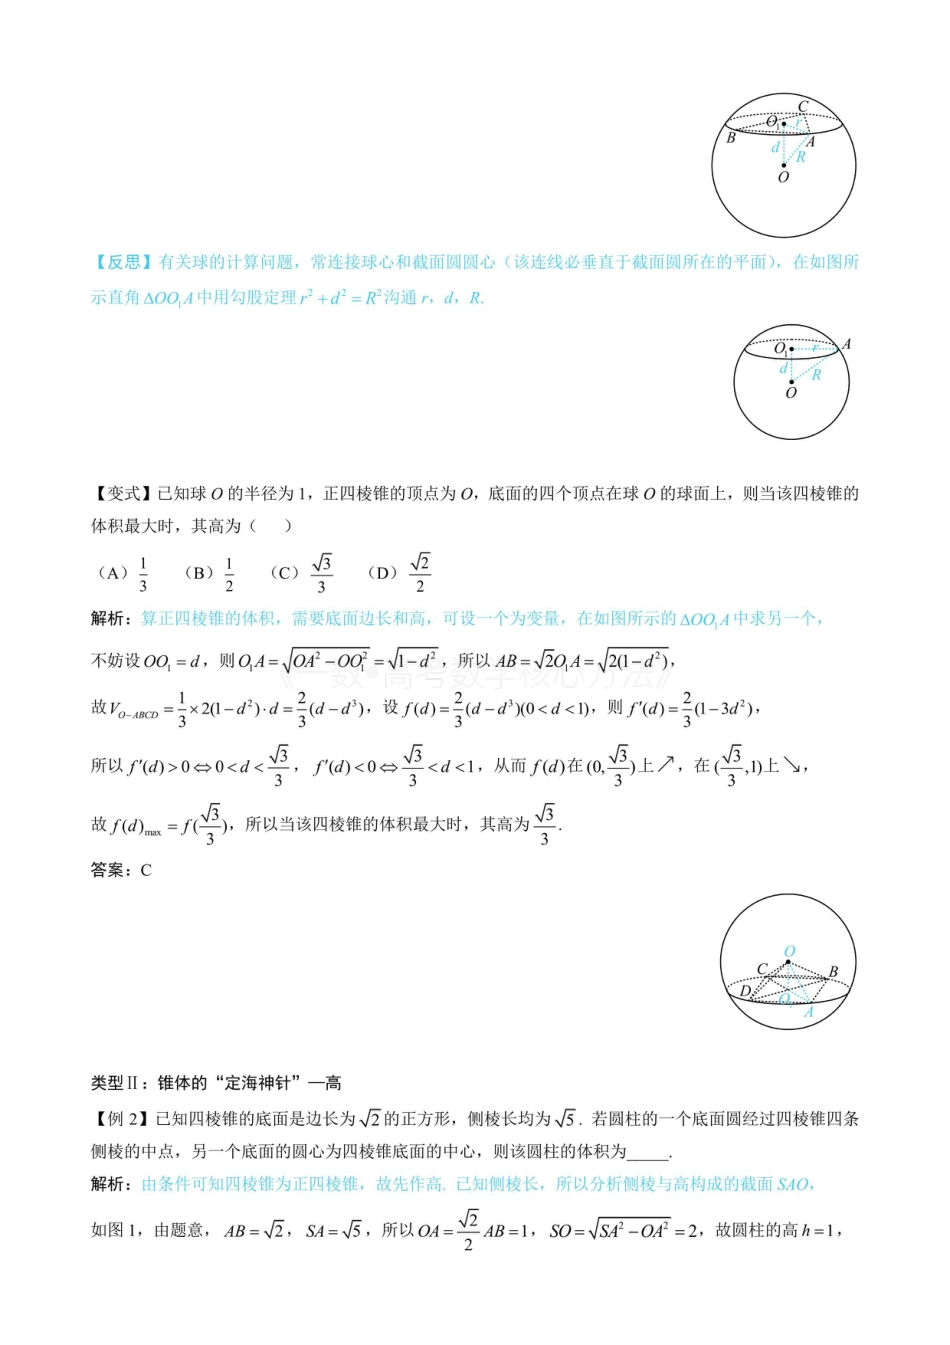 C
O₁
r
B
A
d
R
O
【反思】有关球的计算问题，常连接球心和截面圆圆心（该连线必垂直于截面圆所在的平面），在如图所
示直角 ΔOO₁A 中用勾股定理 r² + d² = R² 沟通 r，d，R.
O₁
r
A
d
R
O
【变式】已知球 O 的半径为 1，正四棱锥的顶点为 O，底面的四个顶点在球 O 的球面上，则当该四棱锥的
体积最大时，其高为（　　）
（A）1/3　（B）1/2　（C）√3/3　（D）√2/2
解析：算正四棱锥的体积，需要底面边长和高，可设一个为变量，在如图所示的 ΔOO₁A 中求另一个，
不妨设 OO₁ = d，则 O₁A = √(OA² − OO₁²) = √(1 − d²)，所以 AB = √2O₁A = √(2(1 − d²))，
《一数•高考数学核心方法》
故 V_{O−ABCD} = 1/3 × 2(1 − d²)·d = 2/3(d − d³)，设 f(d) = 2/3(d − d³)(0 < d < 1)，则 f′(d) = 2/3(1 − 3d²)，
所以 f′(d) > 0 ⇔ 0 < d < √3/3，f′(d) < 0 ⇔ √3/3 < d < 1，从而 f(d) 在 (0, √3/3) 上↗，在 (√3/3, 1) 上↘，
故 f(d)_{max} = f(√3/3)，所以当该四棱锥的体积最大时，其高为 √3/3.
答案：C
O
C
B
D
O₁
A
类型Ⅱ：锥体的“定海神针”—高
【例 2】已知四棱锥的底面是边长为 √2 的正方形，侧棱长均为 √5. 若圆柱的一个底面圆经过四棱锥四条
侧棱的中点，另一个底面的圆心为四棱锥底面的中心，则该圆柱的体积为_____.
解析：由条件可知四棱锥为正四棱锥，故先作高. 已知侧棱长，所以分析侧棱与高构成的截面 SAO，
如图 1，由题意，AB = √2，SA = √5，所以 OA = √2/2 AB = 1，SO = √(SA² − OA²) = 2，故圆柱的高 h = 1，